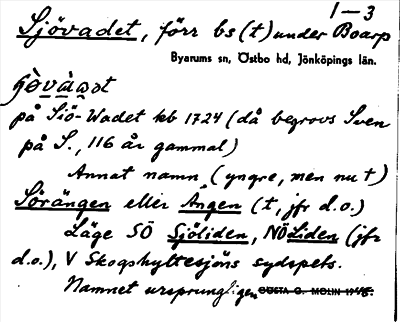 1-3
Sjövadet, förr bs (t) under Boarp
Byarums sn, Östbo hd, Jönköpings län.
på Siö-Wadet kb 1724 (då begrovs Sven
på S., 116 år gammal)
Annat namn (yngre, men nu t)
Sörängen eller Ängen (t, jfr d.o.)
Läge SÖ Sjöliden, NÖ Liden (jfr
d.o.), V Skogshyltesjöns sydspets.
Namnet ursprungligen GÖSTA G. MOLIN 1948.